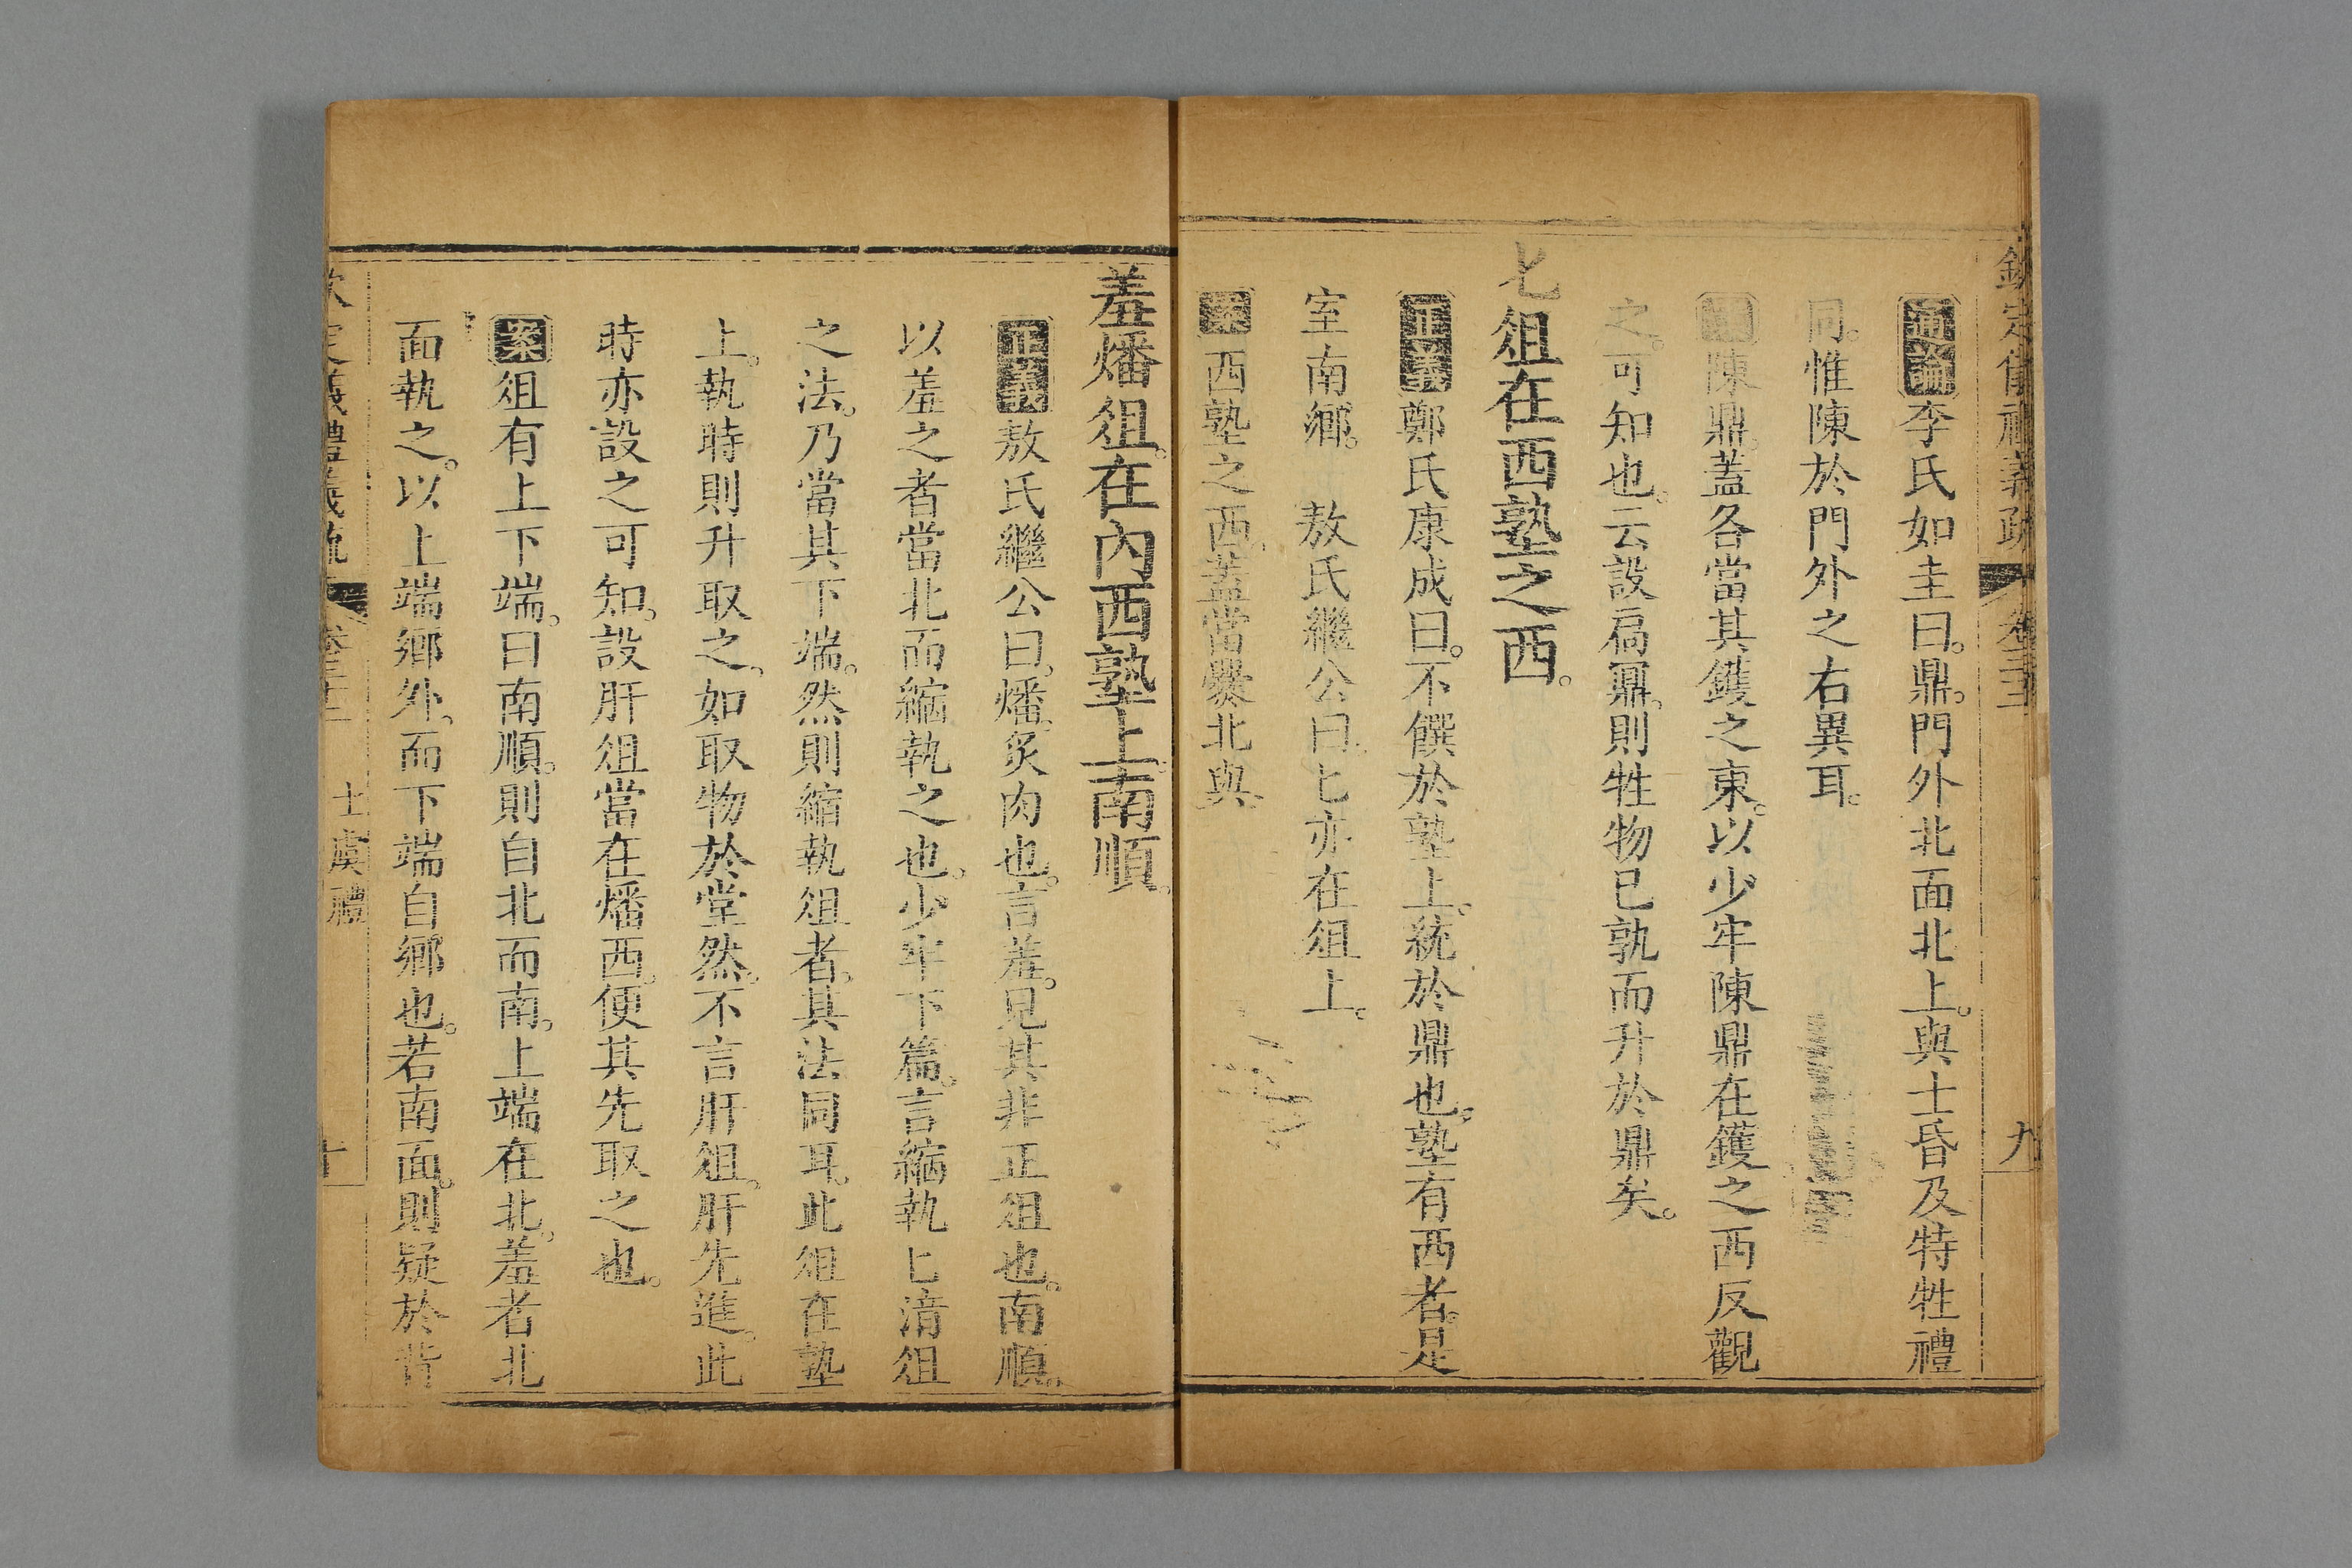 欽定儀禮義疏 卷三十三 九
通論李氏如圭曰。鼎。門外北面北上。與士昏及特牲禮
同。惟陳於門外之右異耳。
陳鼎。蓋各當其鑊之東。以少牢陳鼎在鑊之西反觀
之。可知也。云設扃鼏。則牲物已孰而升於鼎矣。
匕俎在西塾之西。
正義鄭氏康成曰。不饌於塾上。統於鼎也。塾有西者。是
室南鄉。 敖氏繼公曰。匕亦在俎上。
案西塾之西。蓋當爨北與
羞燔俎。在內西塾上。南順。
正義敖氏繼公曰。燔。炙肉也。言羞。見其非正俎也。南順。
以羞之者當北面縮執之也。少牢下篇。言縮執匕湆俎
之法。乃當其下端。然則縮執俎者。其法同耳。此俎在塾
上。執時則升取之。如取物於堂然。不言肝俎。肝先進。此
時亦設之可知。設肝俎當在燔西。便其先取之也。
案俎有上下端。曰南順。則自北而南。上端在北。羞者北
面執之。以上端鄉外。而下端自鄉也。若南面。則疑於背
欽定儀禮義疏 士虞禮 十